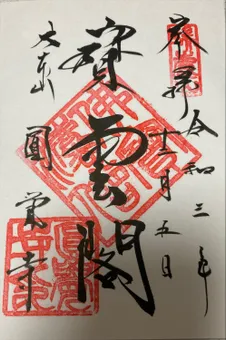 奉拝 令和三年
十二月五日
寶雲閣
大本山
圓覚寺